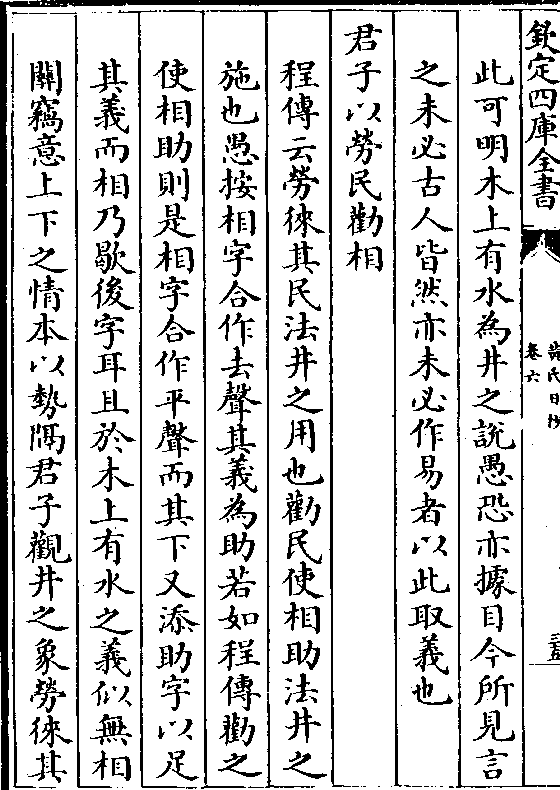 欽定四庫全書
黃氏日抄
卷六
此可明木上有水為井之說愚恐亦據目今所見言
之未必古人皆然亦未必作易者以此取義也
君子以勞民勸相
程傳云勞徠其民法井之用也勸民使相助法井之
施也愚按相字合作去聲其義為助若如程傳勸之
使相助則是相字合作平聲而其下又添助字以足
其義而相乃歇後字耳且於木上有水之義似無相
關竊意上下之情本以勢隔君子觀井之象勞徠其